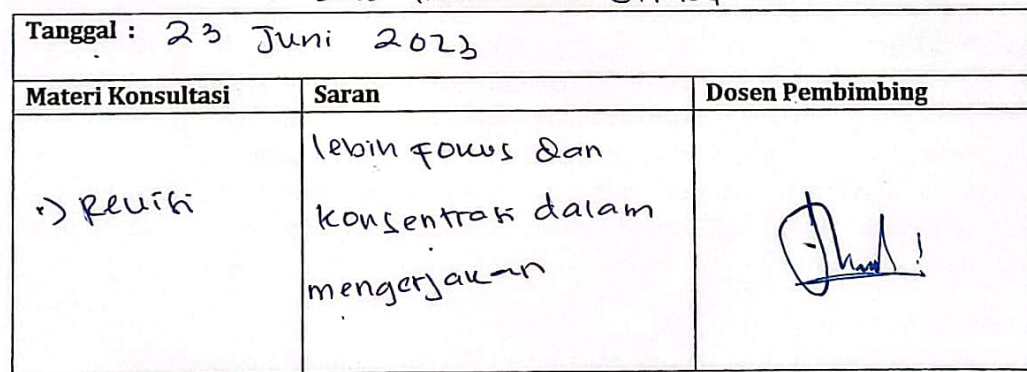 Tanggal : 23 Juni 2023
Materi Konsultasi Saran Dosen Pembimbing
lebih fokus dan
•) Revisi
konsentrasi dalam
mengerjakan